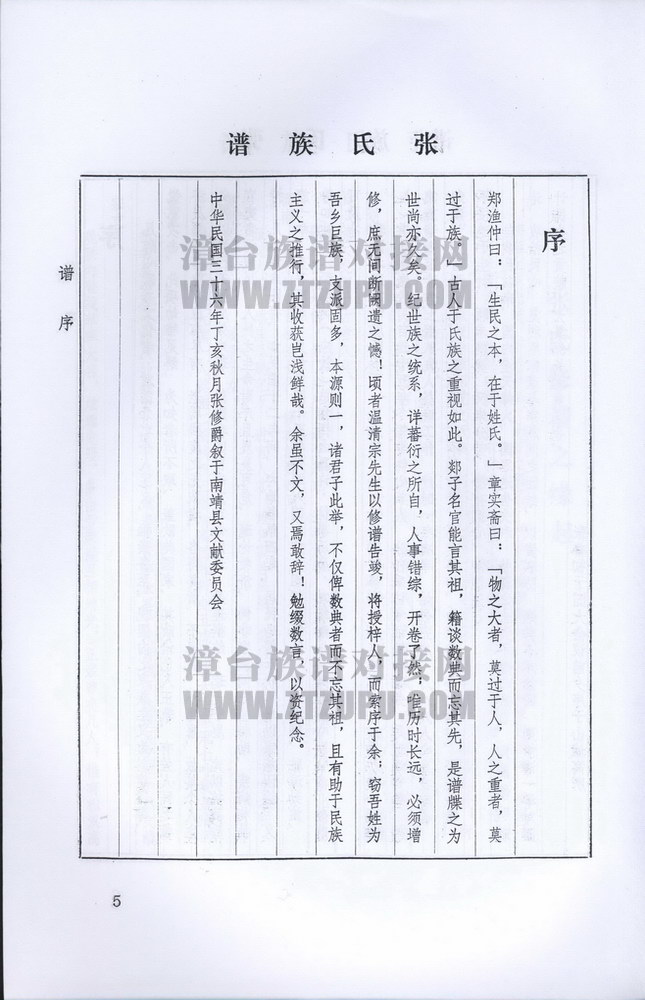 张氏族谱
序
郑渔仲曰：「生民之本，在于姓氏。」章实斋曰：「物之大者，莫过于人，人之重者，莫
过于族。」古人于氏族之重视如此。郯子名官能言其祖，籍谈数典而忘其先，是谱牒之为
世尚亦久矣。纪世族之统系，详蕃衍之所自，人事错综，开卷了然；唯历时长远，必须增
修，庶无间断阙遗之憾！顷者温清宗先生以修谱告竣，将授梓人，而索序于余；窃吾姓为
吾乡巨族，支派固多，本源则一，诸君子此举，不仅俾数典者而不忘其祖，且有助于民族
主义之推行，其收获岂浅鲜哉。余虽不文，又焉敢辞！勉缀数言，以资纪念。
中华民国三十六年丁亥秋月张修爵叙于南靖县文献委员会
谱序
5
漳台族谱对接网
WWW.ZTZUPU.COM
漳台族谱对接网
WWW.ZTZUPU.COM